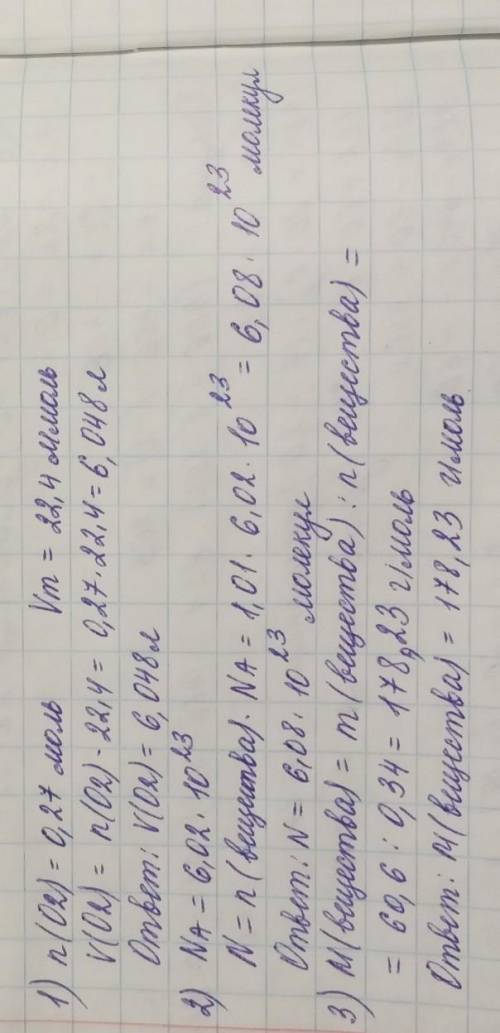 1) n(O2) = 0,27 моль Vm = 22,4 л/моль
V(O2) = n(O2) · 22,4 = 0,27 · 22,4 = 6,048 л
Ответ: V(O2) = 6,048 л
2) NA = 6,02 · 10²³
N = n(вещества) · NA = 1,01 · 6,02 · 10²³ = 6,08 · 10²³ молекул
Ответ: N = 6,08 · 10²³ молекул
3) M(вещества) = m(вещества) : n(вещества) =
= 60,6 : 0,34 = 178,23 г/моль
Ответ: M(вещества) = 178,23 г/моль